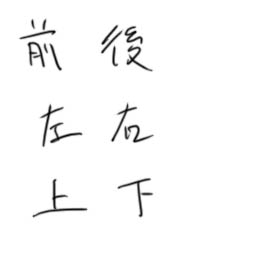 前 後
左 右
上 下